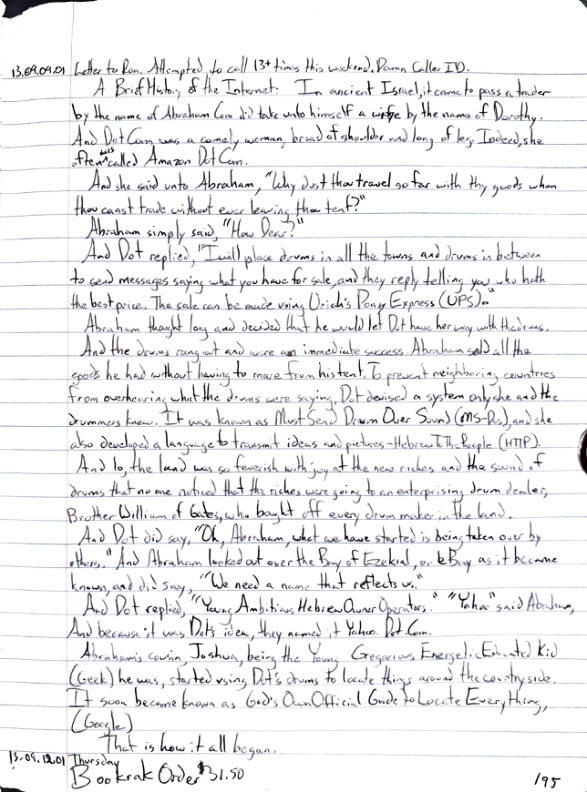 13.09.09.01 Letter to Ron. Attempted to call 13+ times this weekend. Damn Caller ID.
A Brief History of the Internet: In ancient Israel, it came to pass a trader
by the name of Abraham Com did take unto himself a wife by the name of Dorothy.
And Dot Com was a comely woman, broad of shoulder and long of leg. Indeed, she
often was called Amazon Dot Com.
And she said unto Abraham, "Why dost thou travel so far with thy goods when
thou canst trade without ever leaving thou tent?"
Abraham simply said, "How Dear?"
And Dot replied, "I will place drums in all the towns and drums in between
to send messages saying what you have for sale, and they reply telling you who hath
the best price. The sale can be made using Uriah's Pony Express (UPS)."
Abraham thought long and decided that he would let Dot have her way with the drums.
And the drums rang out and were an immediate success. Abraham sold all the
goods he had without having to move from his tent. To prevent neighboring countries
from overhearing what the drums were saying, Dot devised a system only she and the
drummers knew. It was known as Must Send Drum Over Sound (MS-Dos), and she
also developed a language to transmit ideas and pictures - Hebrew To The People (HTTP).
And lo, the land was so feverish with joy at the new riches and the sound of
drums that no one noticed that the riches were going to an enterprising drum dealer,
Brother William of Gates, who bought off every drum maker in the land.
And Dot did say, "Oh, Abraham, what we have started is being taken over by
others." And Abraham looked out over the Bay of Ezekial, or eBay as it became
known, and did say, "We need a name that reflects us."
And Dot replied, "Young Ambitious Hebrew Owner Operators." "Yahoo" said Abraham,
And because it was Dot's idea, they named it Yahoo Dot Com.
Abraham's cousin, Joshua, being the Young Gregarious Energetic Educated Kid
(Geek) he was, started using Dot's drums to locate things around the countryside.
It soon became known as God's Own Official Guide to Locate Everything,
(Google)
That is how it all began.
13.09.12.01 Thursday
Bookrak Order $31.50
195